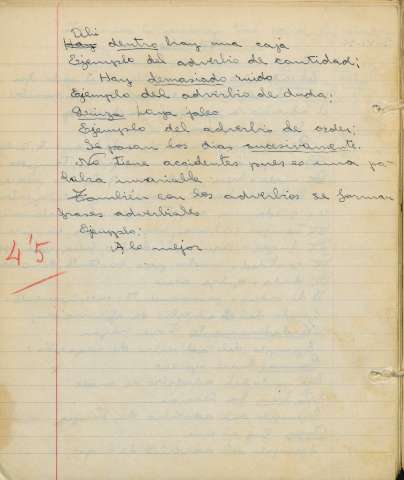 Ahi
Hay dentro hay una caja
Ejemplo del adverbio de cantidad;
Hay demasiado ruido
Ejemplo del adverbio de duda;
Quiza haya jaleo
Ejemplo del adverbio de orden;
Se pasan los dias sucesivamente.
No tiene accidentes pues es una pa-
labra invariable
También con los adverbios se forman
frases adverbiales
Ejemplo:
A lo mejor
4'5